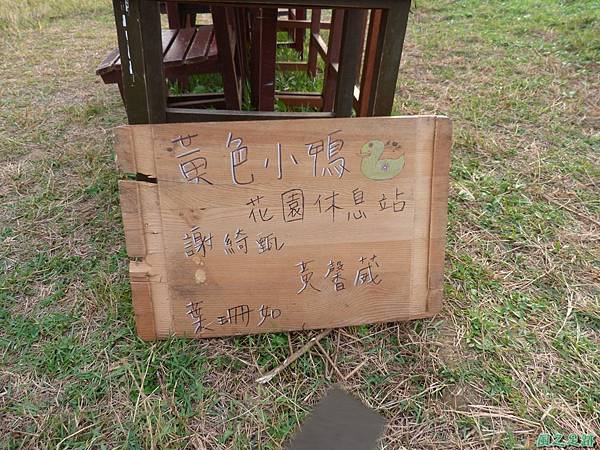 黃色小鴨
花園休息站
謝綺甄
黃馨葳
葉珊如
風之足跡